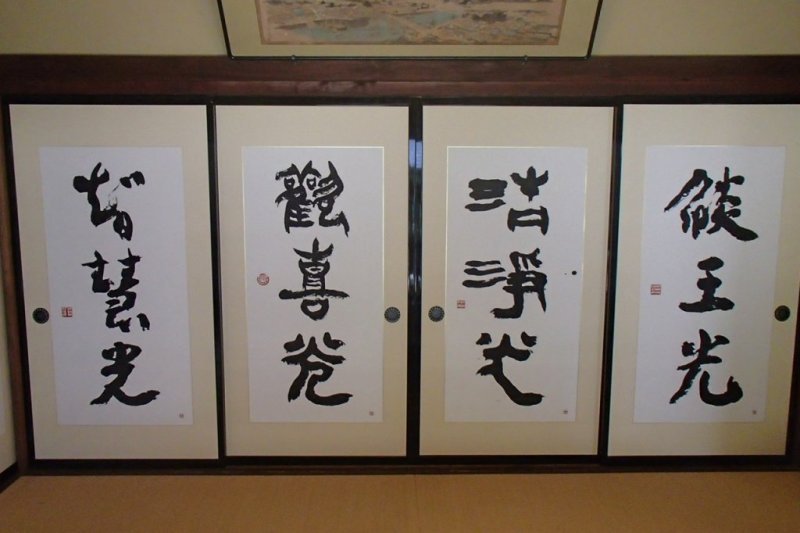 燄王光
清浄光
歡喜光
智慧光